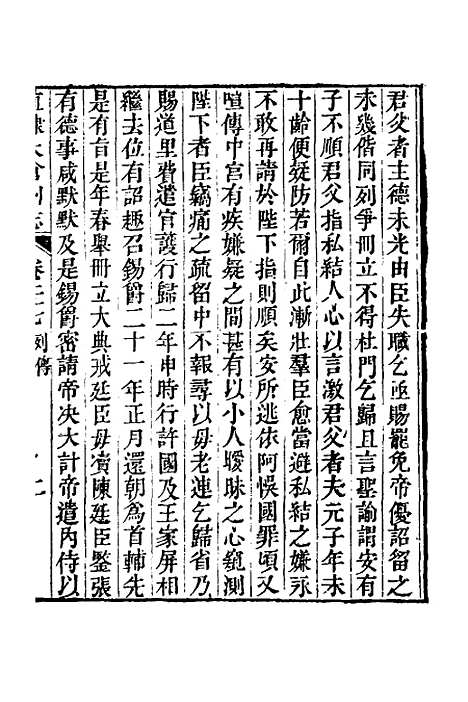 君父者主德未光由臣失職乞亟賜罷免帝優詔留之
未幾偕同列爭冊立不得杜門乞歸且言聖諭謂安有
子不順君父指私結人心以言激君父者夫元子年未
十齡便疑防若爾自此漸壯羣臣愈當避私結之嫌永
不敢再請於陛下指則順矣安所逃依阿悞國罪頃又
喧傳中宮有疾嫌疑之間甚有以小人曖昧之心窺測
陛下者臣竊痛之疏留中不報尋以母老連乞歸省乃
賜道里費遣官護行歸二年申時行許國及王家屏相
繼去位有詔趣召錫爵二十一年正月還朝為首輔先
是有旨是年春舉冊立大典戒廷臣毋瀆陳廷臣鑒張
有德事咸默默及是錫爵密請帝决大計帝遣內侍以
直隷太倉州志 卷二七列傳